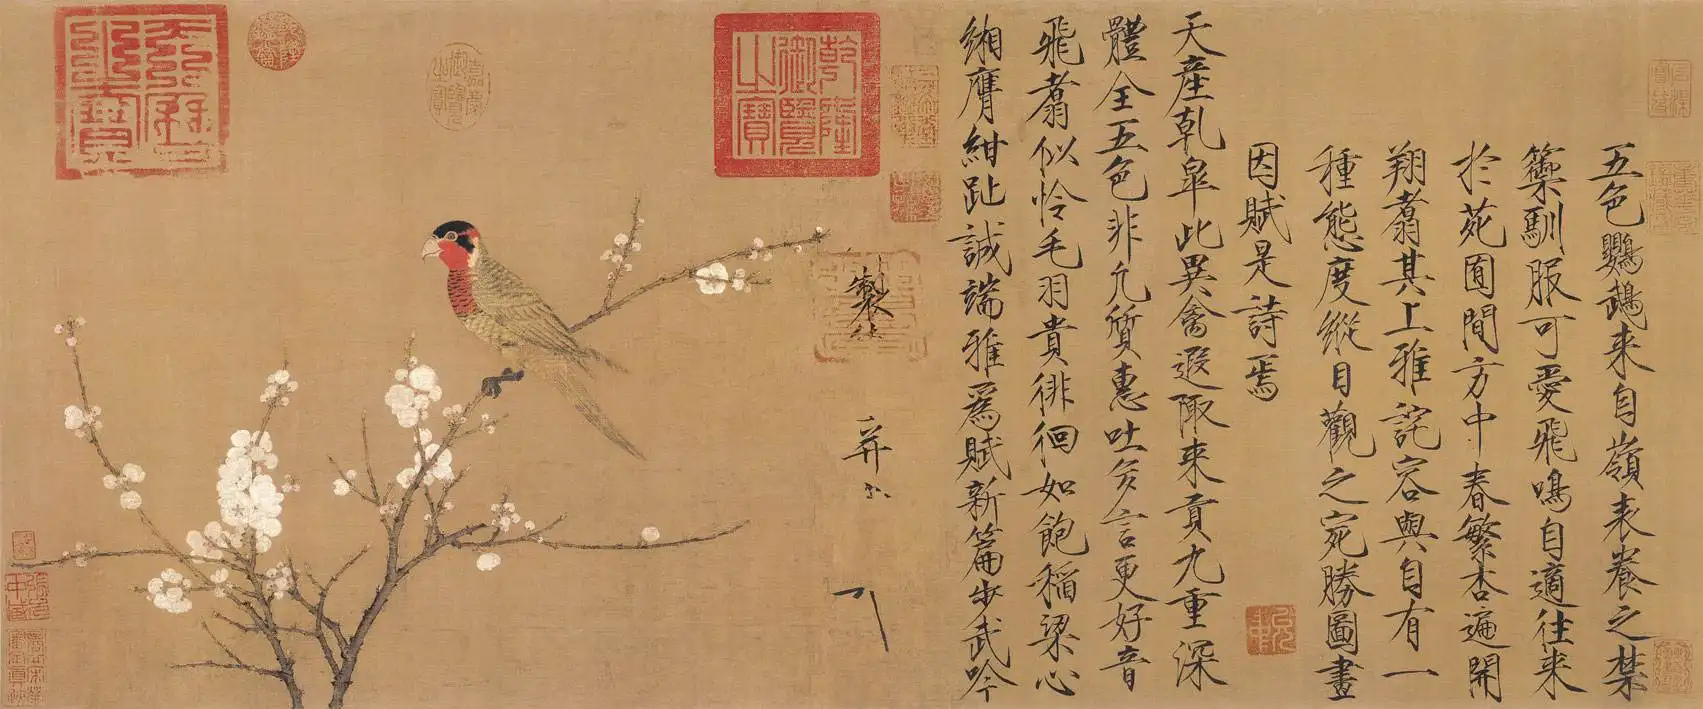 五色鸚鵡来自嶺表養之禁
籞馴服可愛飛鳴自適往来
於苑囿間方中春繁杏遍開
翔翥其上雅詫容與自有一
種態度縱目觀之宛勝圖畫
因賦是詩焉
天産乾皐此異禽遐陬来貢九重深
體全五色非凡質惠吐多言更好音
飛翥似怜毛羽貴徘徊如飽稲粱心
緗膺紺趾誠端雅爲賦新篇步武吟
製
并
乾隆御覽之寶